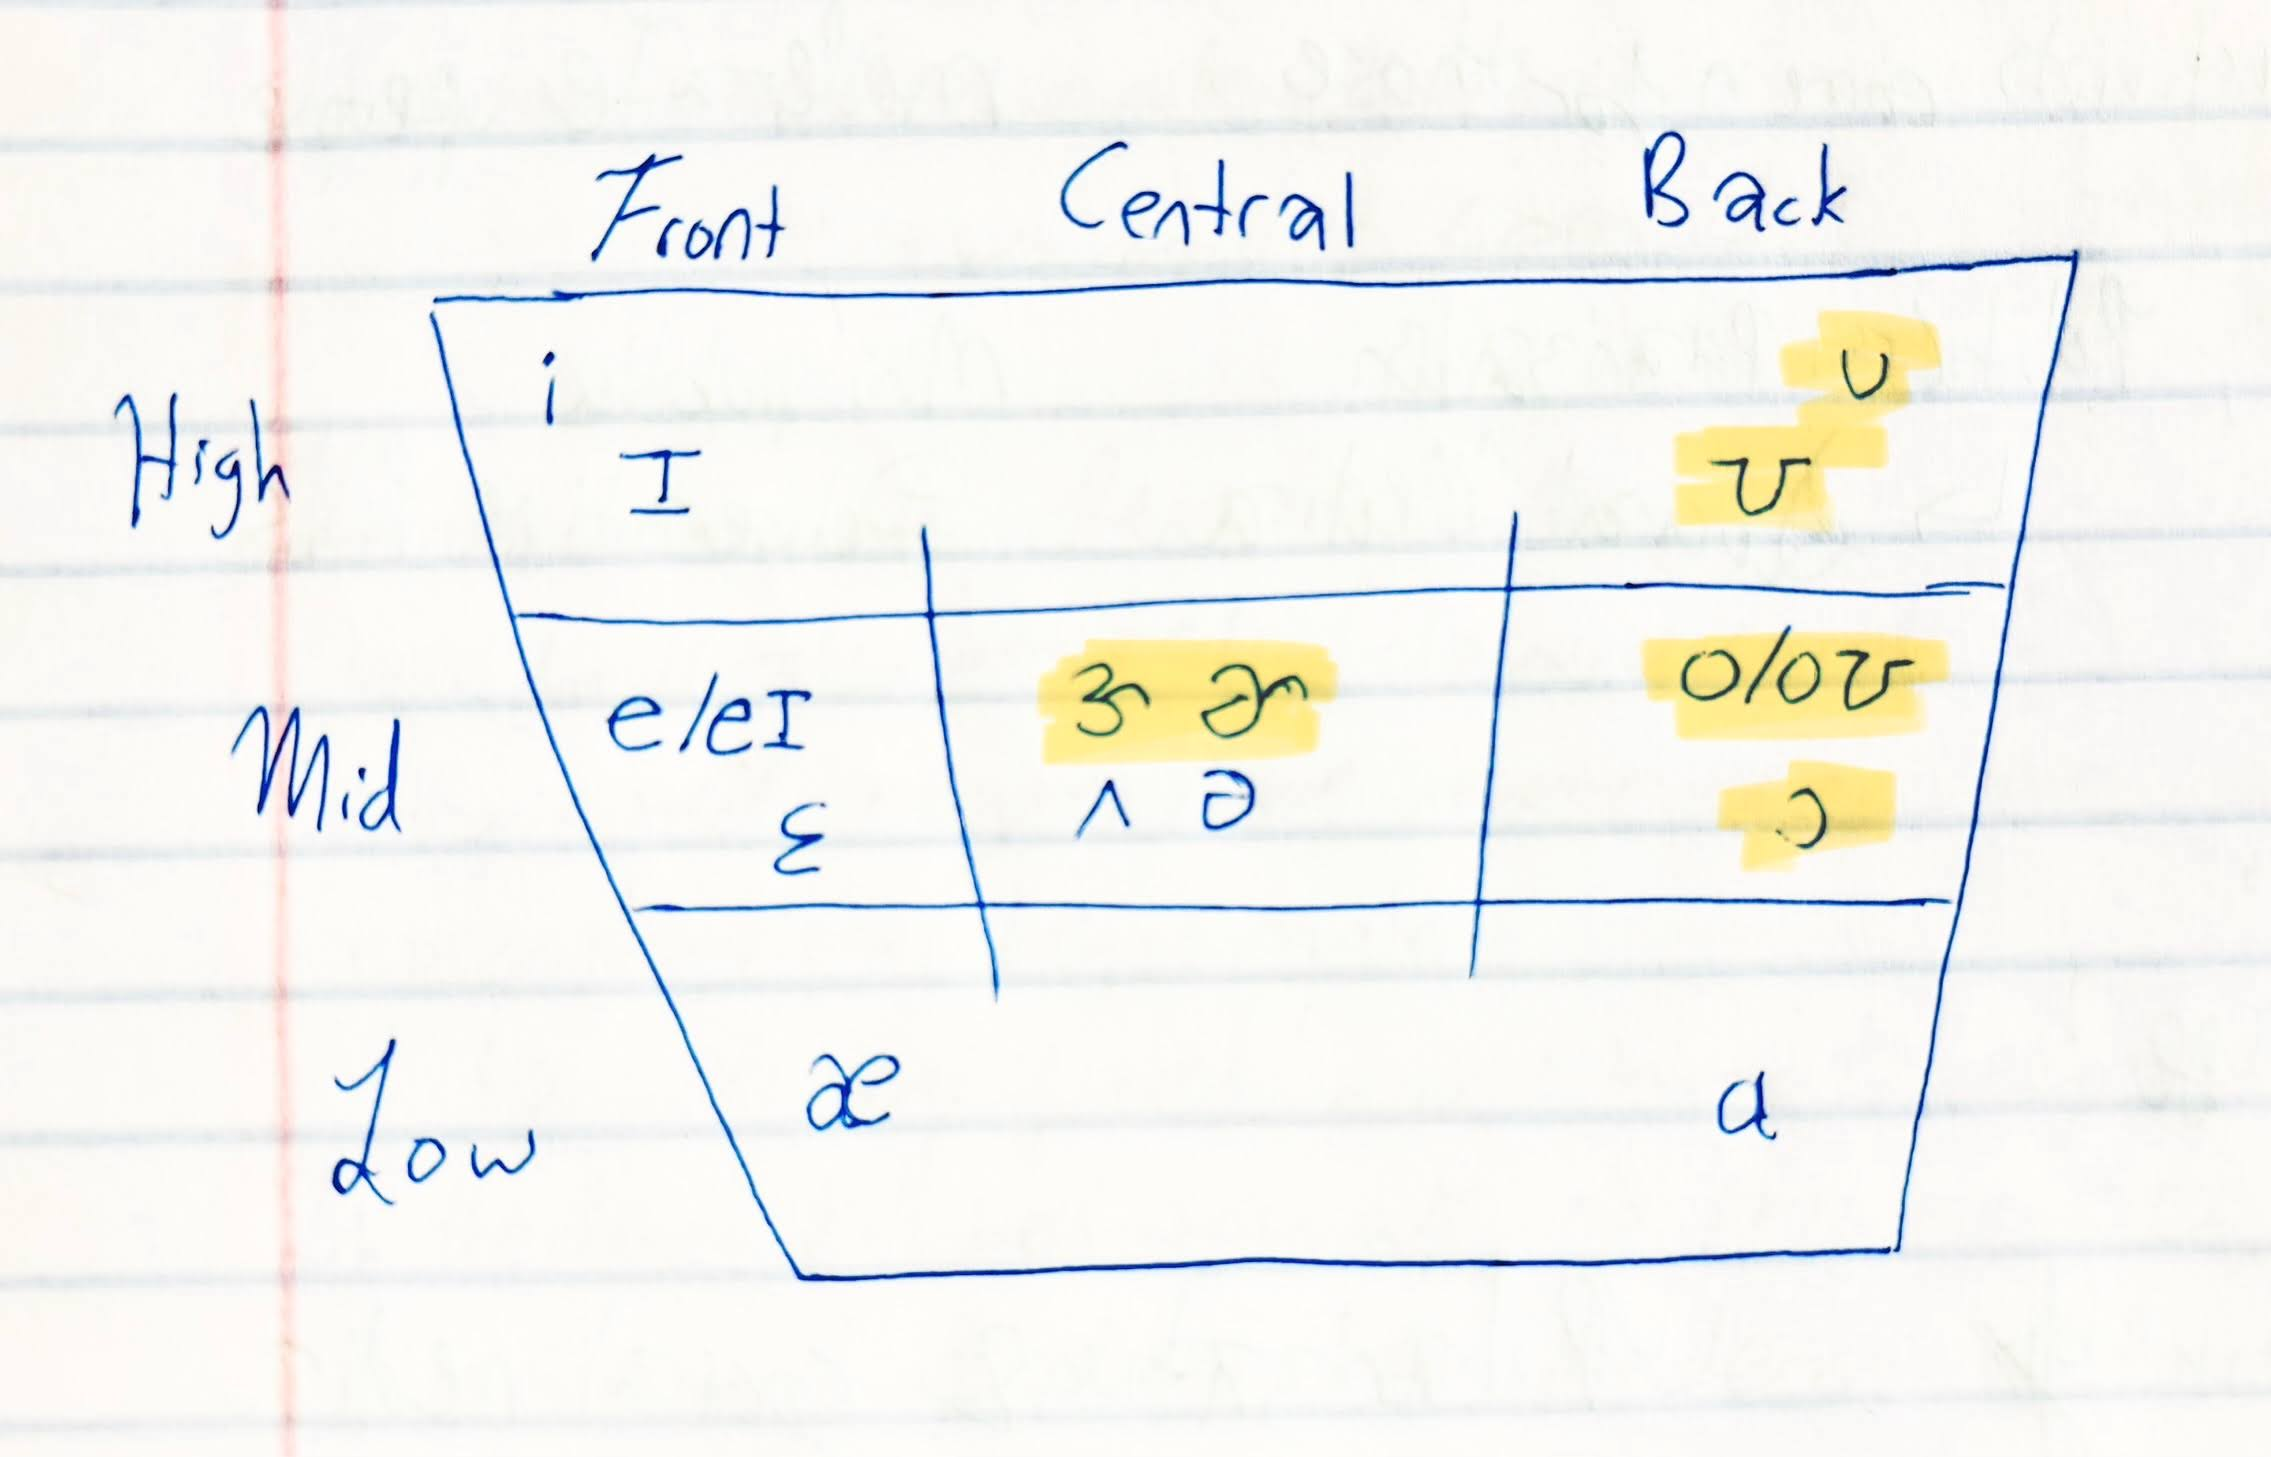 Front Central Back
i u
High I ʊ
e/eI ɝ ɚ o/oʊ
Mid ɛ ʌ ə ɔ
Low æ ɑ